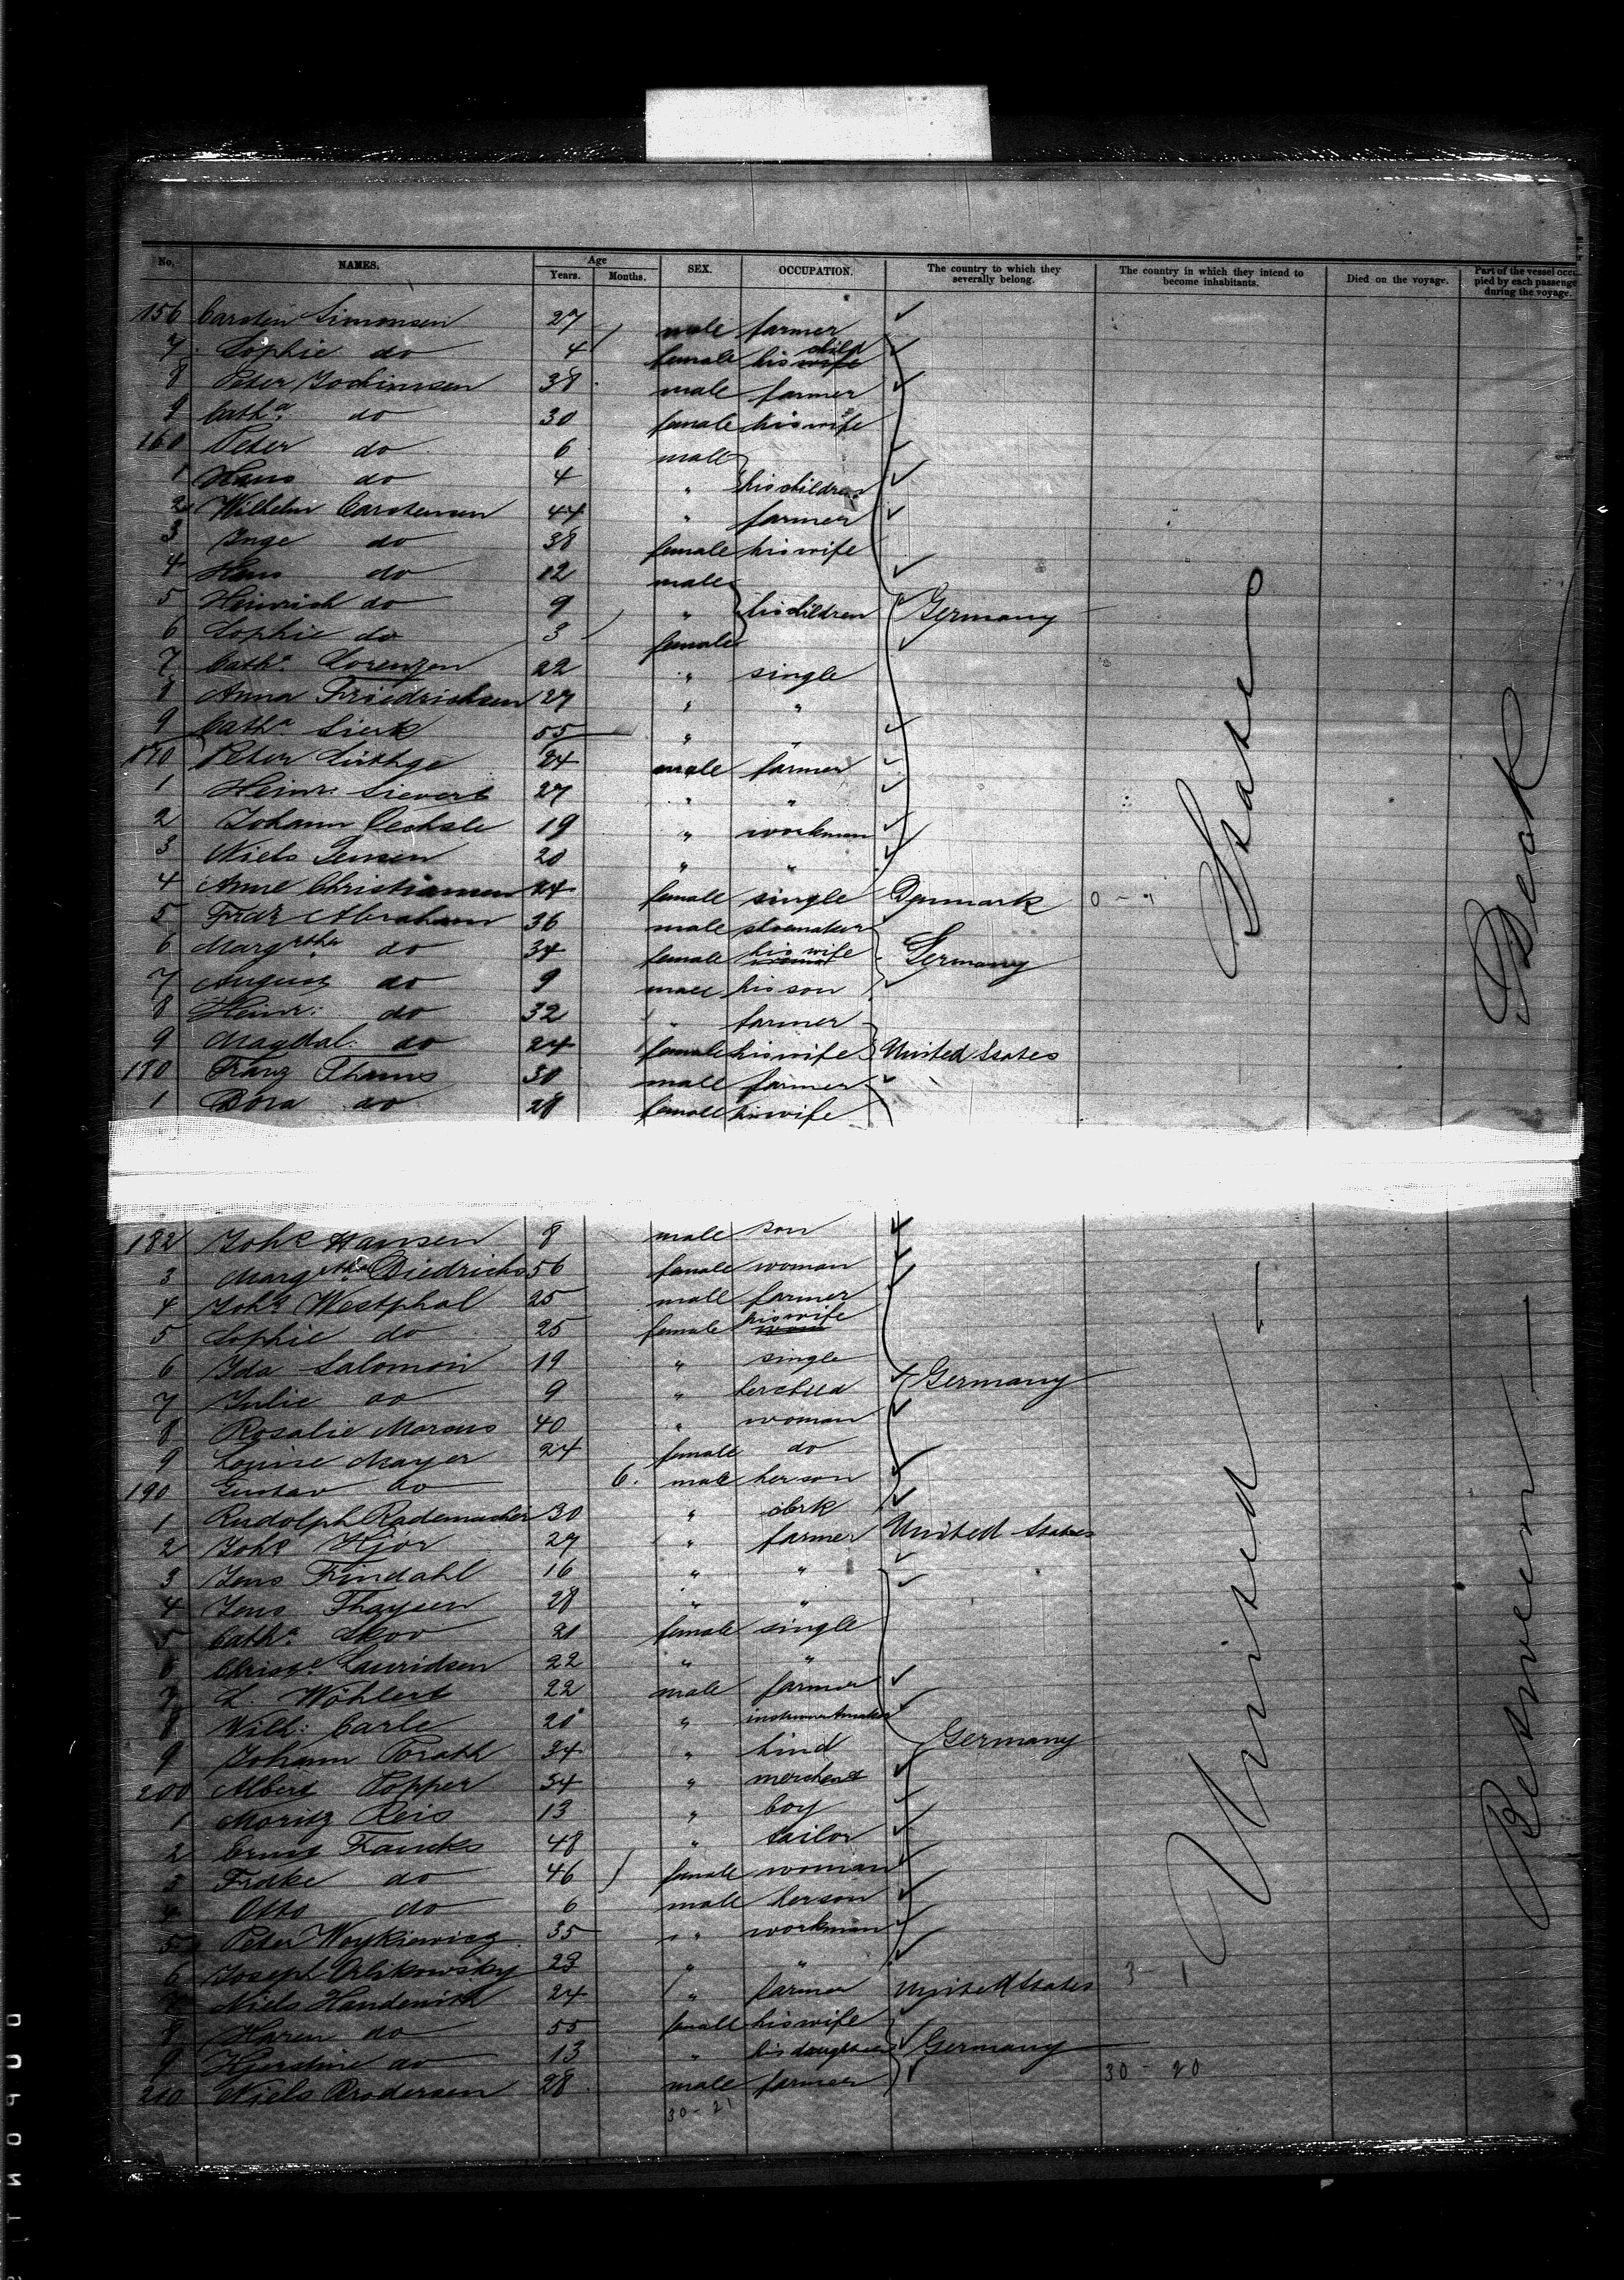 No. NAMES. Age Years. Months. SEX. OCCUPATION. The country to which they severally belong. The country in which they intend to become inhabitants. Died on the voyage. Part of the vessel occupied by each passenger during the voyage.
156 Carsten Simonsen 27 male farmer
7 Sophie do 4 female his wife child
8 Peter Jochimsen 38 male farmer
9 Cath.a do 30 female his wife
160 Peter do 6 male
1 Hans do 4 " his children
2 Wilhelm Carstensen 44 " farmer
3 Inge do 38 female his wife
4 Hans do 12 male
5 Heinrich do 9 " his children Germany
6 Sophie do 3 female
7 Cath.a Lorenzen 22 " single
8 Anna Friedrichsen 27 " "
9 Cath.a Sierk 55 " "
170 Peter Lüthge 24 male farmer
1 Heinr. Sievert 27 " "
2 Johann Oechsle 19 " workman
3 Niels Jensen 20 " "
4 Anne Christiansen 24 female single Denmark
5 Fredr Abraham 36 male shoemaker
6 Margretha do 34 female his wife Germany
7 August do 9 male his son
8 Heinr: do 32 " farmer
9 Magdal. do 24 female his wife United States
180 Franz Thams 30 male farmer
1 Dora do 28 female his wife
182 Joh.s Hansen 8 male son
3 Margretha Diedrichs 56 female woman
4 Joh.s Westphal 25 male farmer
5 Sophie do 25 female his wife
6 Ida Salomon 19 " single
7 Julie do 9 " her child Germany
8 Rosalie Marcus 40 " woman
9 Louise Mayer 24 female do
190 Gustav do 6. male her son
1 Rudolph Rademacher 30 " clerk
2 Joh.s Kjör 27 " farmer United States
3 Jens Findahl 16 " "
4 Jens Thaysen 28 " "
5 Cath.a Skov 21 female single
6 Christ.e Lauridsen 22 " "
7 L. Wöhlert 22 male farmer
8 Wilh: Carle 20 " instrumentmaker
9 Johann Porath 34 " hind Germany
200 Albert Popper 54 " merchant
1 Moritz Reis 13 " boy
2 Ernst Francks 48 " tailor
3 Fridke do 46 female woman
4 Otto do 6 male her son
5 Peter Woykiewicz 35 " workman
6 Joseph Orlikowsky 23 " "
7 Niels Handewith 24 " farmer United States 3 - 1
8 Karen do 55 female his wife
9 Kjerstine do 13 " his daughter Germany
210 Niels Brodersen 28 male farmer 30 - 20
30 - 21
United States
Between Deck